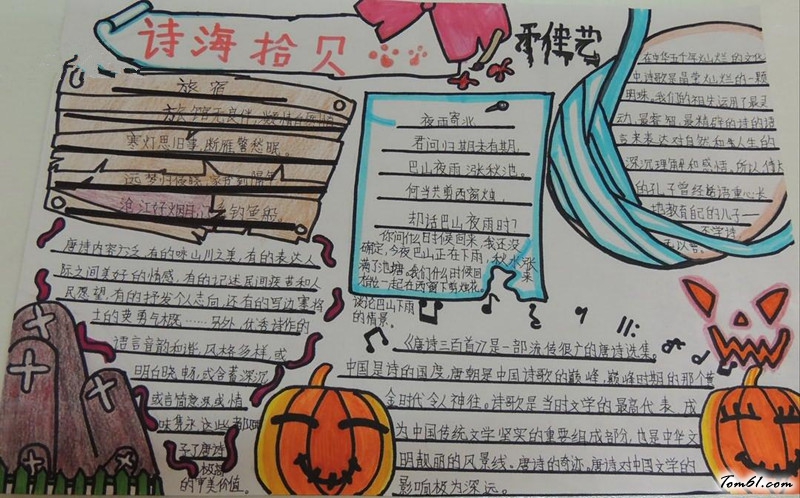 诗海拾贝
旅宿
旅馆无良伴,凝情自悄然
寒灯思旧事,断雁警愁眠。
远梦归侵晓,家书到隔年
沧江好烟月,门系钓鱼船。
夜雨寄北
君问归期未有期,
巴山夜雨涨秋池。
何当共剪西窗烛,
却话巴山夜雨时?
你问什么日时候回来,我还没
确定,今夜巴山正在下雨,秋水涨
满了池塘,我们什么时候回来
相拉一起在西窗下剪烛花,
谈论巴山下雨
的情景。
在中华五千年灿烂的文化
中诗歌是晶莹灿烂的一颗
明珠,我们的祖先运用了最灵
动、最睿智、最精辟的诗的语
言来表达对自然和人生的
深沉理解和感情,所以伟大
的孔子曾经语重心长
地教育自己的儿子——
不学诗
无以言。
唐诗内容广泛,有的咏山川之美,有的表达人
际之间美好的情感,有的记述民间疾苦和人
民愿望,有的抒发个人志向,还有的写边塞将
士的英勇气概……另外,优秀诗作的
语言音韵和谐,风格多样,或
明白晓畅,或含蓄深沉
或言简意
这些都
了唐诗
的审美价值。
《唐诗三百首》是一部流传很广的唐诗选集。
中国是诗的国度,唐朝是中国诗歌的巅峰,巅峰时期的那个黄
金时代令人神往。诗歌是当时文学的最高代表,成
为中国传统文学坚实的重要组成部分,也是中华文
明靓丽的风景线。唐诗的奇迹,唐诗对中国文学的
影响极为深远。
Tom61.com